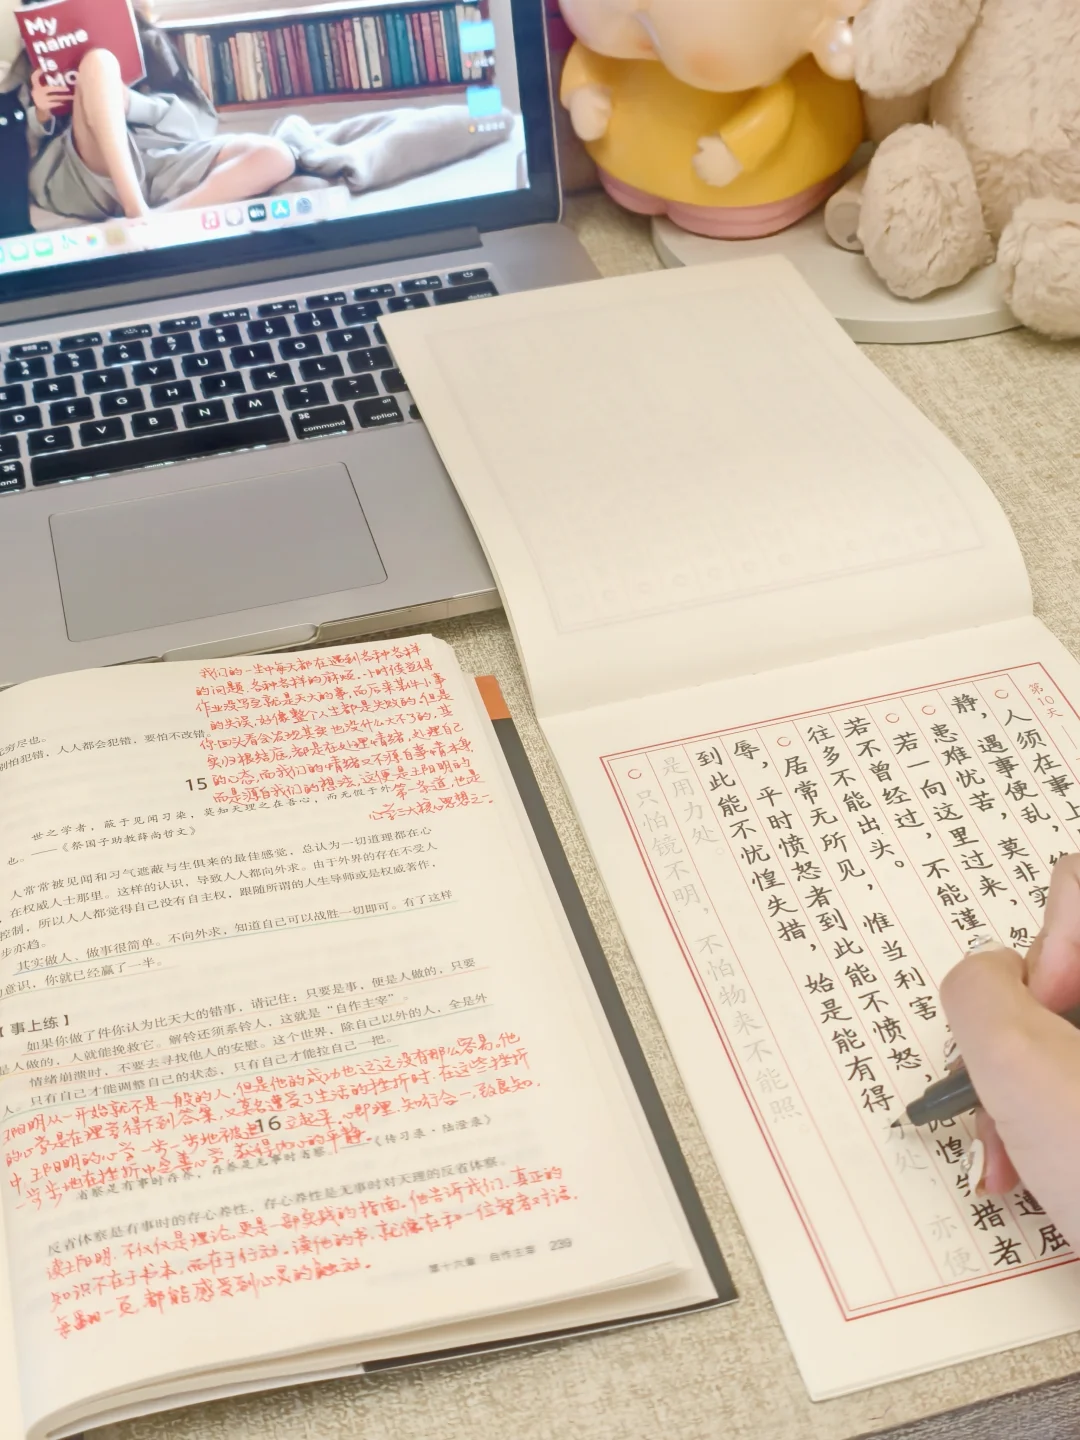 My
name
is
MO
我们的一生中每天都在遇到各种各样
的问题、各种各样的麻烦。小时候觉得
作业没写完就是天大的事，而后来某件小事
的失误，好像整个人生都是失败的，但是
你回头看会发现其实也没什么大不了的，其
实归根结底，都是在处理情绪，处理自己
的心态，而我们的情绪又不源自事情本身，
而是源自我们的想法，这便是王阳明的
第一条道，也是
心学三大核心思想之一
无穷尽也。
别怕犯错，人人都会犯错，要怕不改错。
15
世之学者，蔽于见闻习染，莫知天理之在吾心，而无假于外
也。——《祭国子助教薛尚哲文》
人常常被见闻和习气遮蔽与生俱来的最佳感觉，总认为一切道理都在心
，在权威人士那里。这样的认识，导致人人都向外求。由于外界的存在不受人
控制，所以人人都觉得自己没有自主权，跟随所谓的人生导师或是权威著作，
步亦趋。
其实做人、做事很简单。不向外求，知道自己可以战胜一切即可。有了这样
的意识，你就已经赢了一半。
【事上练】
如果你做了件你认为比天大的错事，请记住：只要是事，便是人做的，只要
是人做的，人就能挽救它。解铃还须系铃人，这就是“自作主宰”。
情绪崩溃时，不要去寻找他人的安慰。这个世界，除自己以外的人，全是外
人。只有自己才能调整自己的状态，只有自己才能拉自己一把。
王阳明从一开始就不是一般的人，但是他的成功也远远没有那么容易。他
的心学是在理学得不到答案，又莫名遭受了生活的挫折时，在这些挫折
中，王阳明的心学一步一步地被建立起来，心即理、知行合一，致良知。
一步步地在挫折中完善心学，获得内心的平静。
16
省察是有事时存养，存养是无事时省察。
《传习录·陆澄录》
反省体察是有事时的存心养性，存心养性是无事时对天理的反省体察。
读王阳明，不仅仅是理论，更是一部实践的指南。他告诉我们，真正的
知识不在于书本，而在于行动。读他的书，就像在和一位智者对话，
每翻一页，都能感受到心灵的触动。
第十六章 自作主宰 239
第10天
人须在事上
静，遇事便乱，
忽
患难忧苦，莫非实
若一向这里过来，不能谨
若不曾经过，
利害
往多不能出头。惟当
遭屈
居常无所见，
辱，平时愤怒者到此能不愤怒，
忧惶失措者
到此能不忧惶失措，始是能有得
力处，亦便
是用力处。
只怕镜不明，不怕物来不能照。